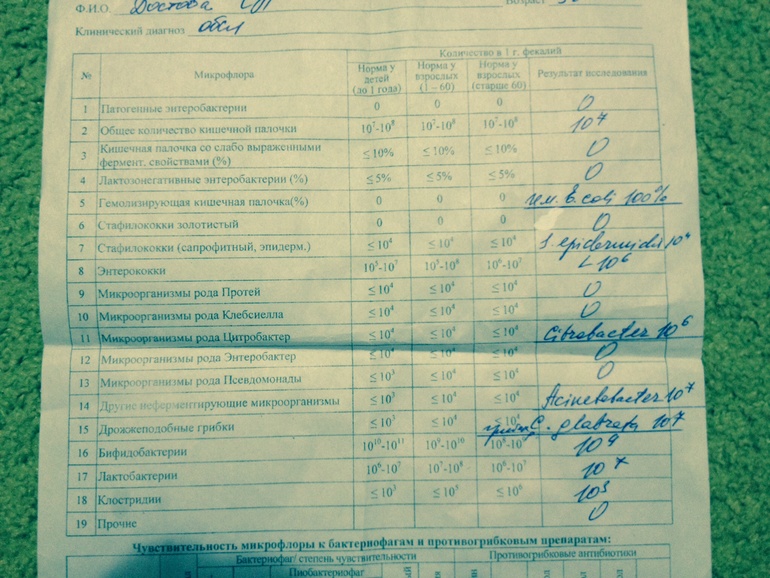 Ф.И.О.
Возраст
Клинический диагноз обсл
№ Микрофлора Количество в 1 г. фекалий Результат исследования
Норма у детей (до 1 года) Норма у взрослых (1 – 60) Норма у взрослых (старше 60)
1 Патогенные энтеробактерии 0 0 0 0
2 Общее количество кишечной палочки 10⁷-10⁸ 10⁷-10⁸ 10⁷-10⁸ 10⁷
3 Кишечная палочка со слабо выраженными фермент. свойствами (%) ≤10% ≤10% ≤10% 0
4 Лактозонегативные энтеробактерии (%) ≤5% ≤5% ≤5% 0
5 Гемолизирующая кишечная палочка(%) 0 0 0 гем. E. coli 100%
6 Стафилококки золотистый 0 0 0 0
7 Стафилококки (сапрофитный, эпидерм.) ≤10⁴ ≤10⁴ ≤10⁴ S. epidermidis 10⁴
8 Энтерококки 10⁵-10⁷ 10⁵-10⁸ 10⁶-10⁷ <10⁶
9 Микроорганизмы рода Протей ≤10⁴ ≤10⁴ ≤10⁴ 0
10 Микроорганизмы рода Клебсиелла ≤10⁴ ≤10⁴ ≤10⁴ 0
11 Микроорганизмы рода Цитробактер ≤10⁴ ≤10⁴ ≤10⁴ Citrobacter 10⁶
12 Микроорганизмы рода Энтеробактер ≤10⁴ ≤10⁴ ≤10⁴ 0
13 Микроорганизмы рода Псевдомонады ≤10³ ≤10⁴ ≤10⁴ 0
14 Другие неферментирующие микроорганизмы ≤10³ ≤10⁴ ≤10⁴ Acinetobacter 10⁷
15 Дрожжеподобные грибки ≤10³ ≤10⁴ ≤10⁴ C. glabrata 10⁷
16 Бифидобактерии 10¹⁰-10¹¹ 10⁹-10¹⁰ 10⁹
17 Лактобактерии 10⁶-10⁷ 10⁷-10⁸ 10⁶-10⁷ 10⁷
18 Клостридии ≤10³ ≤10⁵ ≤10⁶ 10³
19 Прочие 0
Чувствительность микрофлоры к бактериофагам и противогрибковым препаратам:
Бактериофаг/ степень чувствительности Противогрибковые антибиотики
Пиобактериофаг